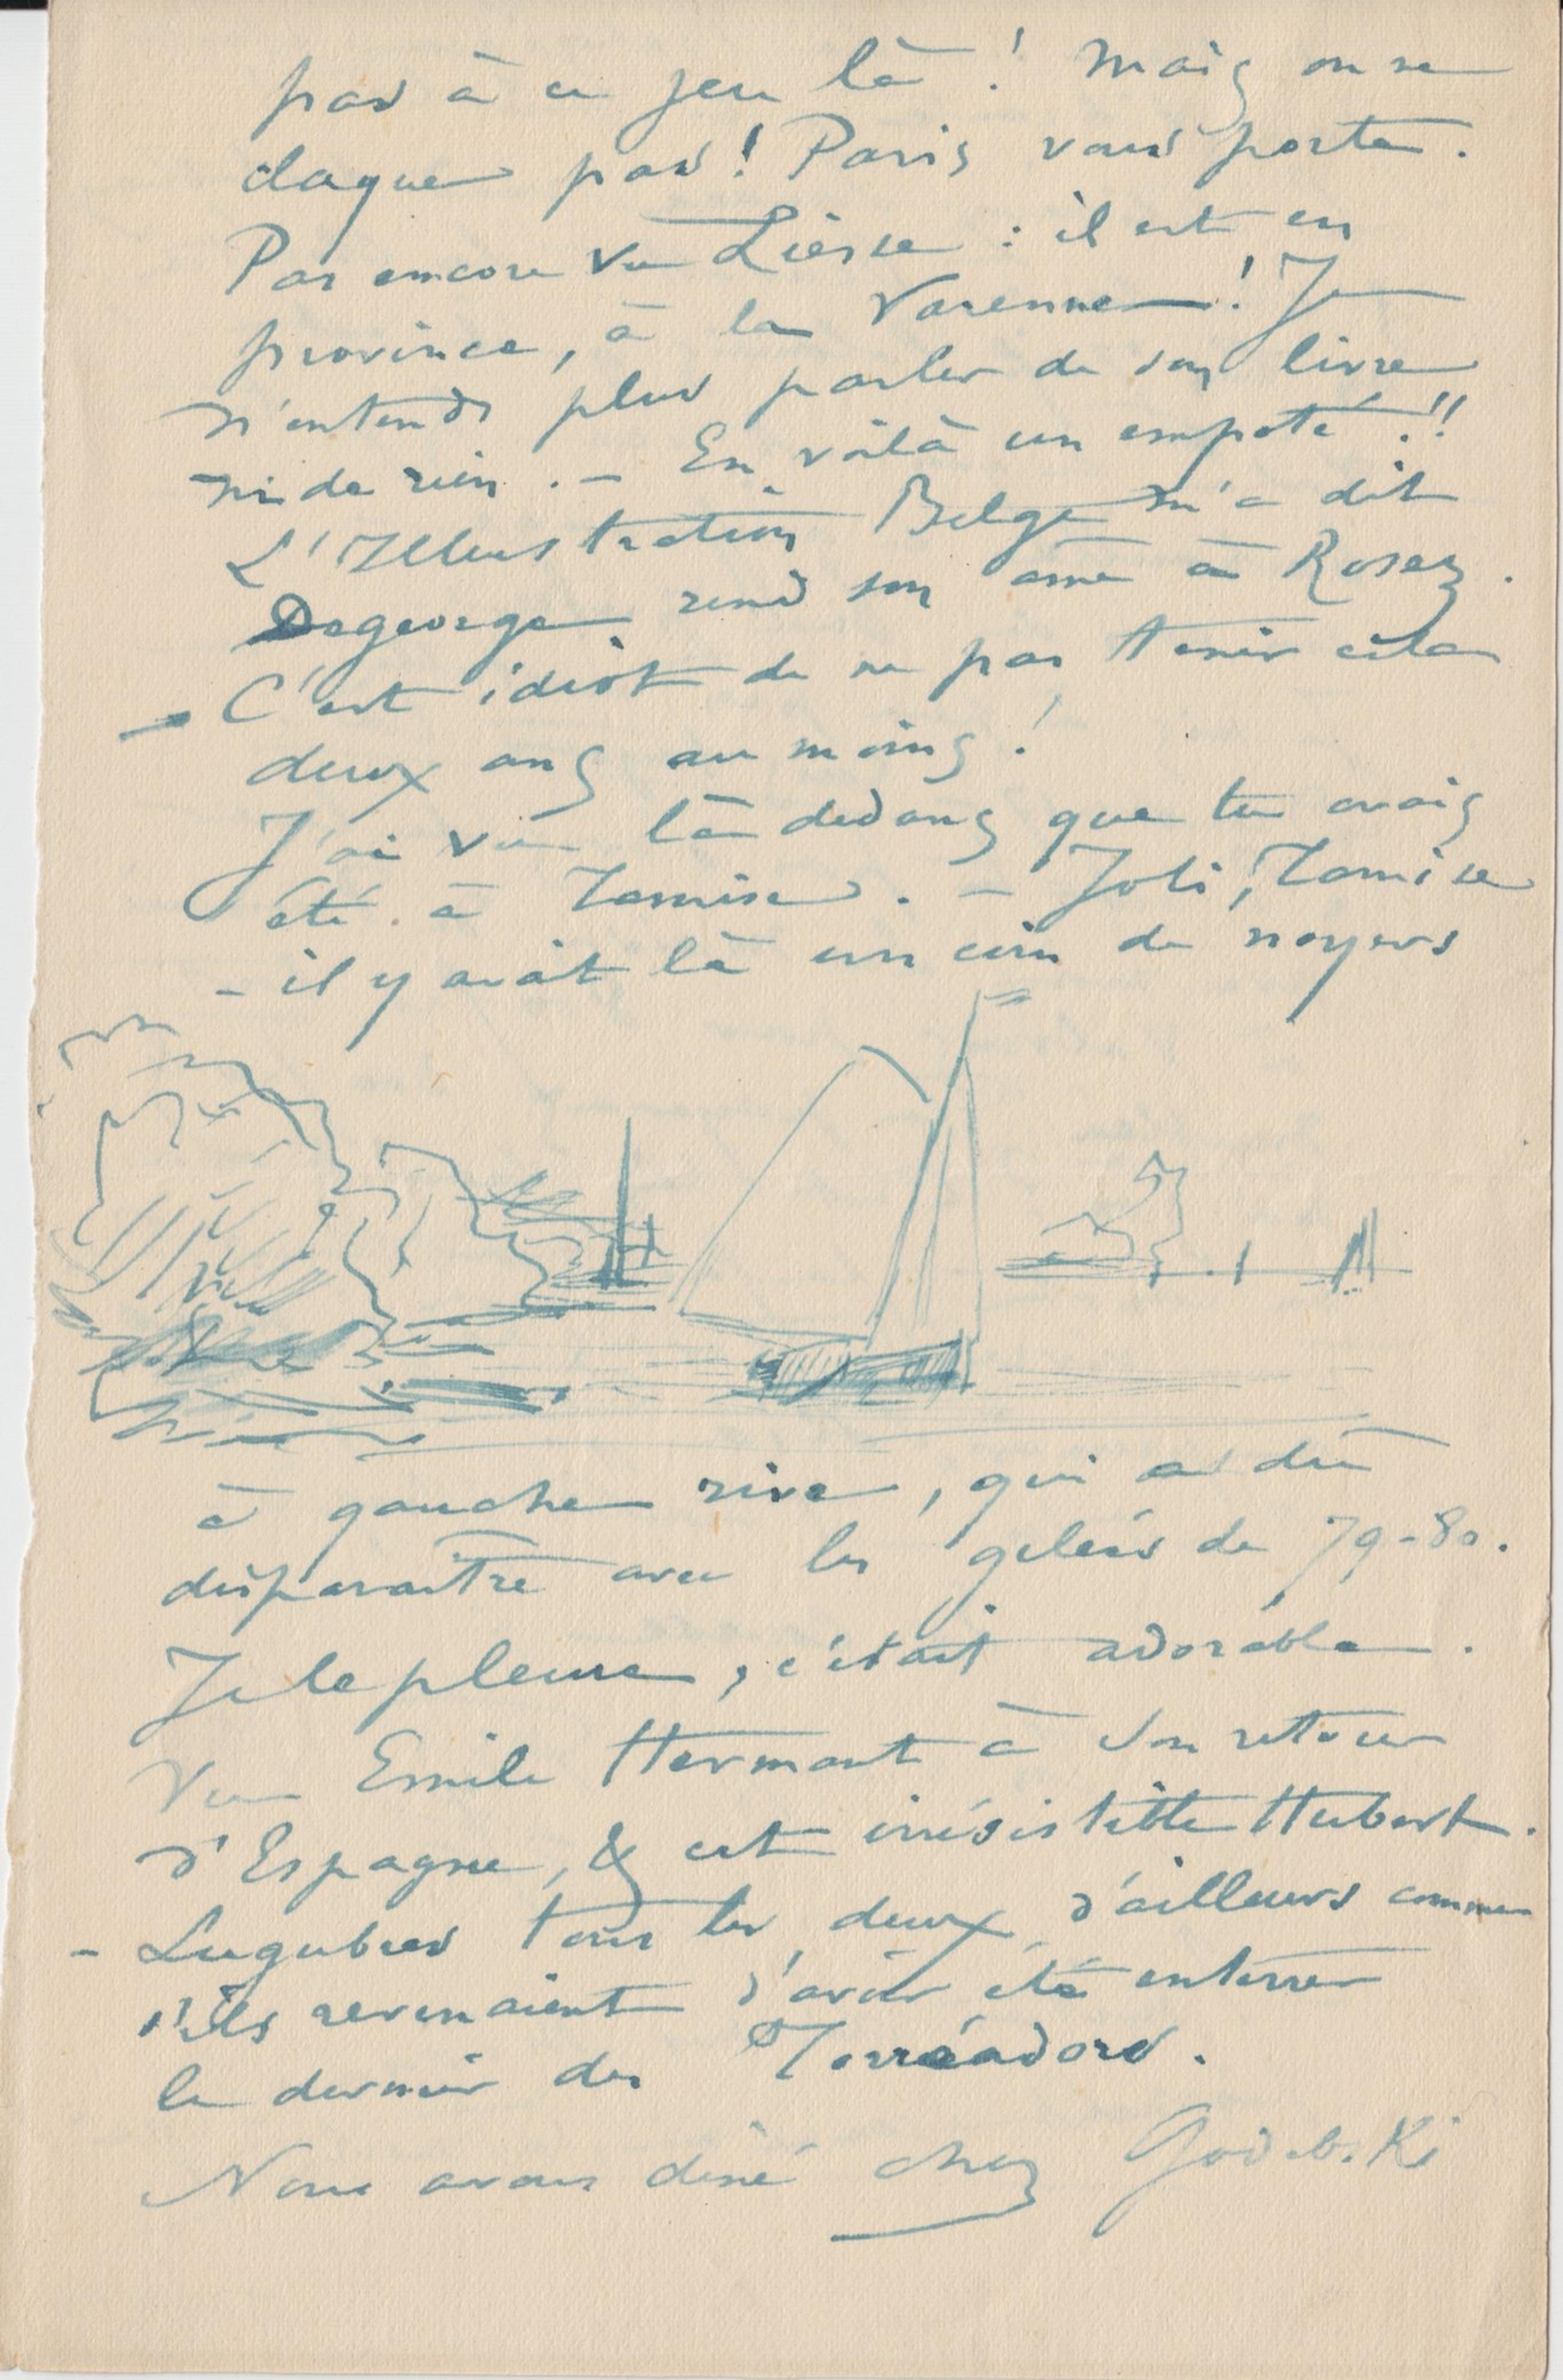 pas à ce jeu là ! Mais on ne
claque pas ! Paris vous porte.
Pas encore vu Liesse : il est en
province, à la Varenne ! Je
n'entends plus parler de son livre
ni de rien . – En voilà un empoté !!
L'Illustration Belge m'a dit
Degeorge rend son âme à Rosez.
– C'est idiot de ne pas tenir cela
deux ans au moins !
J'ai vu là dedans que tu avais
été à Tamise . – Joli, Tamise
– il y avait là un coin de noyers
à gauche rive, qui a dû
disparaître avec les gelées de 79-80.
Je le pleure, c'était adorable .
Vu Emile Hermant à son retour
d'Espagne, & cet irrésistible Hubert.
– Lugubres tous les deux d'ailleurs comme
s'ils revenaient d'avoir été enterrer
le dernier des Torréadors.
Nous avons diné chez Godebski